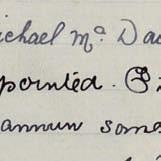 ichael Mc Da
ppointed.
annum some